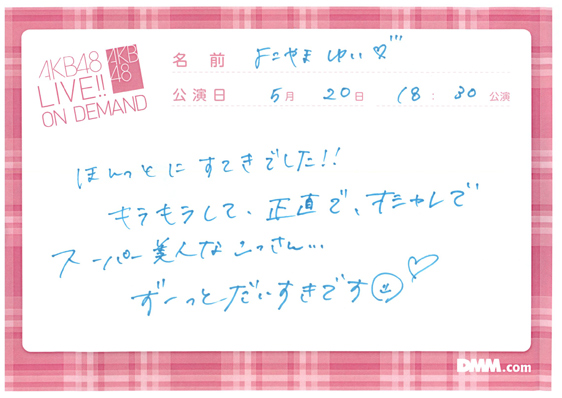 AKB48
LIVE!!
ON DEMAND
AKB
48
名前 よこやまゆい♡
公演日 5月 20日 18:30 公演
ほんっとにすてきでした!!
キラもうして、正直で、オシャレで
スーパー美人なこっさん...
ずーっとーだいすきです
DMM.com